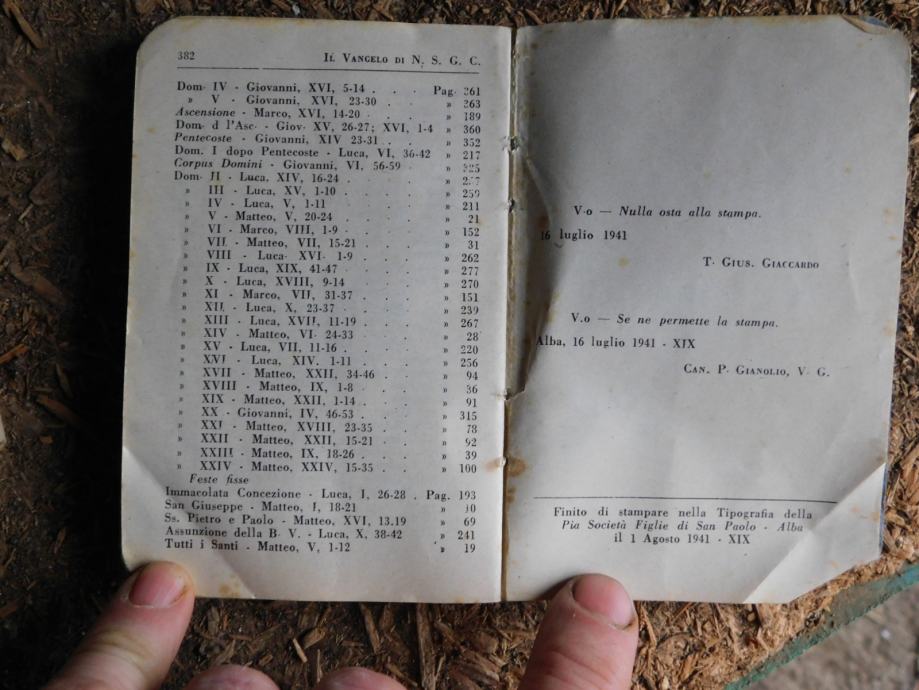 382 Il Vangelo di N. S. G. C.
Dom. IV - Giovanni, XVI, 5-14 . . . Pag. 361
» V - Giovanni, XVI, 23-30 . . » 363
Ascensione - Marco, XVI, 14-20 . . . » 189
Dom. d l'Asc. - Giov. XV, 26-27; XVI, 1-4 » 360
Pentecoste - Giovanni, XIV 23-31 . . . » 352
Dom. I dopo Pentecoste - Luca, VI, 36-42 » 217
Corpus Domini - Giovanni, VI, 56-59 . »
Dom. II - Luca, XIV, 16-24 . . . »
» III - Luca, XV, 1-10 . . . » 259
» IV - Luca, V, 1-11 . . . » 211
» V - Matteo, V, 20-24 . . . » 21
» VI - Marco, VIII, 1-9 . . . » 152
» VII - Matteo, VII, 15-21 . . . » 31
» VIII - Luca, XVI, 1-9 . . . » 262
» IX - Luca, XIX, 41-47 . . . » 277
» X - Luca, XVIII, 9-14 . . . » 270
» XI - Marco, VII, 31-37 . . . » 151
» XII - Luca, X, 23-37 . . . . » 239
» XIII - Luca, XVII, 11-19 . . . » 267
» XIV - Matteo, VI, 24-33 . . . » 28
» XV - Luca, VII, 11-16 . . . . » 220
» XVI - Luca, XIV, 1-11 . . . . » 256
» XVII - Matteo, XXII, 34-46 . . » 94
» XVIII - Matteo, IX, 1-8 . . . » 36
» XIX - Matteo, XXII, 1-14 . . . » 91
» XX - Giovanni, IV, 46-53 . . . » 315
» XXI - Matteo, XVIII, 23-35 . . » 78
» XXII - Matteo, XXII, 15-21 . . » 92
» XXIII - Matteo, IX, 18-26 . . » 39
» XXIV - Matteo, XXIV, 15-35 . . » 100
Feste fisse
Immacolata Concezione - Luca, I, 26-28 . Pag. 193
San Giuseppe - Matteo, I, 18-21 . . » 10
Ss. Pietro e Paolo - Matteo, XVI, 13.19 » 69
Assunzione della B. V. - Luca, X, 38-42 » 241
Tutti i Santi - Matteo, V, 1-12 . . » 19
V.o — Nulla osta alla stampa.
16 luglio 1941
T. Gius. Giaccardo
V.o — Se ne permette la stampa.
Alba, 16 luglio 1941 - XIX
Can. P. Gianolio, V. G.
Finito di stampare nella Tipografia della
Pia Società Figlie di San Paolo - Alba
il 1 Agosto 1941 - XIX